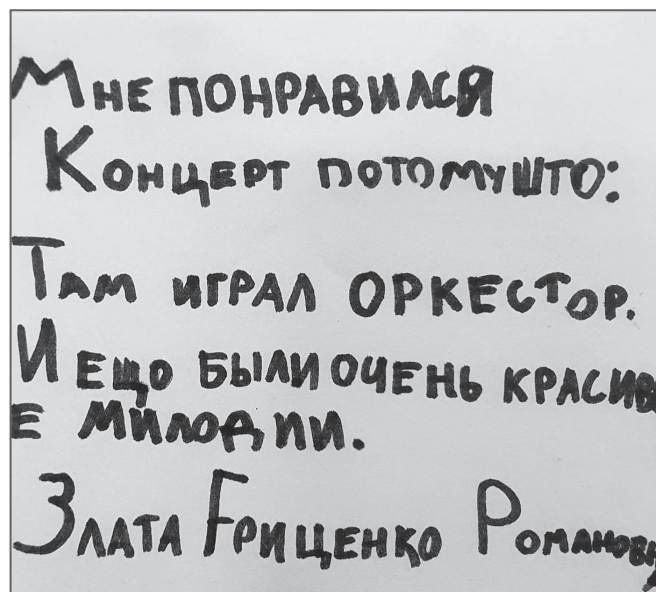 Мне понравился
Концерт потомушто:
Там играл оркестор.
И ещо были очень красивы
е милодии.
Злата Гриценко Романовна